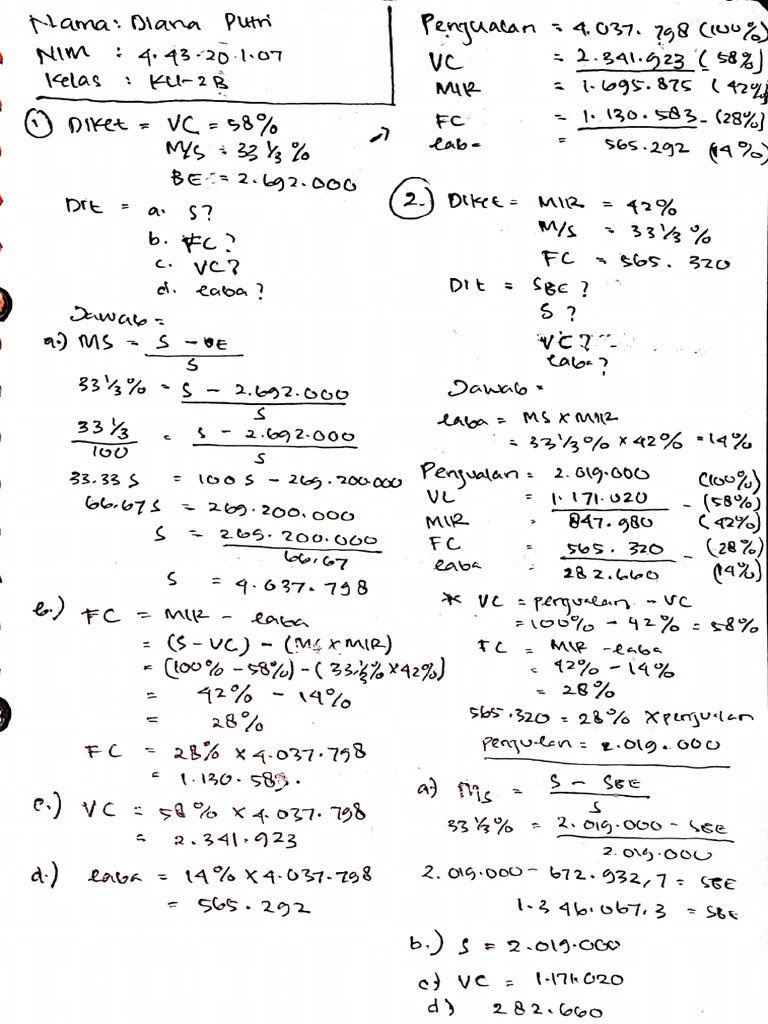 Nama: Diana Putri
NIM : 4.43.20.1.07
Kelas : KU-2B
① Diket = VC = 58%
M/S = 33 1/3 %
BE = 2.692.000
Dit = a. S?
b. FC?
c. VC?
d. laba?
Jawab =
a.) MS = S - BE
S
33 1/3 % = S - 2.692.000
S
33 1/3 = S - 2.692.000
100 S
33.33 S = 100 S - 269.200.000
66.67 S = 269.200.000
S = 269.200.000
66.67
S = 4.037.798
b.) FC = MIR - laba
= (S - VC) - (MS x MIR)
= (100% - 58%) - (33 1/3 % x 42%)
= 42% - 14%
= 28%
FC = 28% x 4.037.798
= 1.130.583.
c.) VC = 58% x 4.037.798
= 2.341.923
d.) laba = 14% x 4.037.798
= 565.292
Penjualan = 4.037.798 (100%)
VC = 2.341.923 (58%)
MIR = 1.695.875 (42%)
FC = 1.130.583 - (28%)
laba = 565.292 (14%)
②. Diket = MIR = 42%
M/S = 33 1/3 %
FC = 565.320
Dit = SBE ?
S ?
VC ?
laba ?
Jawab =
laba = MS x MIR
= 33 1/3 % x 42% = 14%
Penjualan = 2.019.000 (100%)
VC = 1.171.020 - (58%)
MIR = 847.980 (42%)
FC = 565.320 - (28%)
laba = 282.660 (14%)
* VC = penjualan - VC
= 100% - 42% = 58%
FC = MIR - laba
= 42% - 14%
= 28%
565.320 = 28% x penjualan
penjualan = 2.019.000
a) MS = S - SBE
S
33 1/3 % = 2.019.000 - SBE
2.019.000
2.019.000 - 672.932,7 = SBE
1.346.067,3 = SBE
b.) S = 2.019.000
c) VC = 1.171.020
d) 282.660